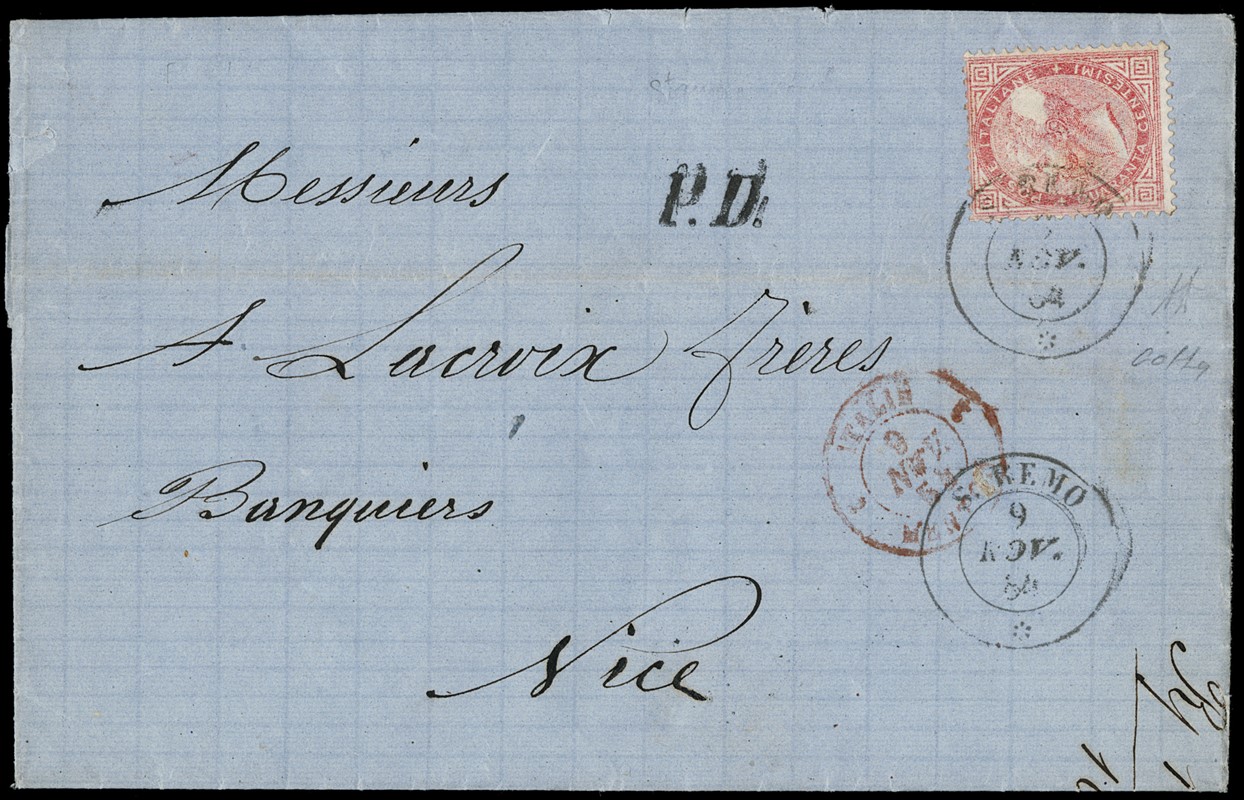 Messieurs
P.D.
A Lacroix Frères
Banquiers
Nice
ITALIANE + CENTESIMI
NOV.
64
ITALIE
9
S. REMO
9
NOV.
64